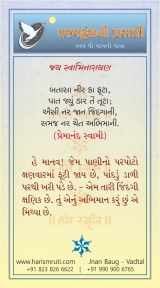 પરમહંસની પ્રસાદી
સ્વયં થી પરમની યાત્રા
જય સ્વામિનારાયણ
બતાસા નીર કા ફૂટા;
પાત જ્યું ડાર તેં તૂટા;
ઐસી નર જાન જિંદગાની,
સમજ નર ચેત અભિમાની.
(પ્રેમાનંદ સ્વામી)
હે માનવ! જેમ પાણીનો પરપોટો
ક્ષણવારમાં ફૂટી જાય છે, પાંદડું ડાળી
પરથી ખરી પડે છે. - એમ તારી જિંદગી
ક્ષણિક છે. તું એનું અભિમાન કરું છું એ
મિથ્યા છે.
|| હરિ સ્મૃતિ ||
www.harismruti.com
Jnan Baug - Vadtal
+91 823 826 6622 | +91 990 900 6765